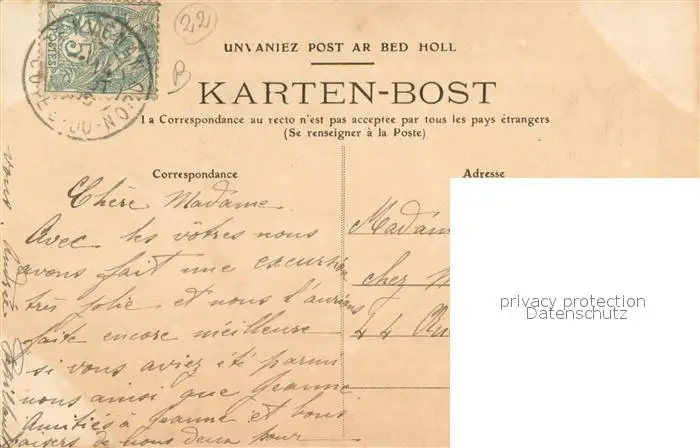 22
UNVANIEZ POST AR BED HOLL
B
KARTEN-BOST
La Correspondance au recto n'est pas acceptee par tous les pays étrangers
(Se renseigner à la Poste)
Correspondance
Chère Madame
Avec les vôtres nous
avons fait une excursion
très jolie et nous l'aurions
faite encore meilleure
si vous aviez été parmi
nous ainsi que Jeanne
Amitiés à Jeanne et bons
baisers de nous deux pour
vous. Andrée
Adresse
Madam
chez M
44 Rue
POSTES
5
CÔTES-DU-NORD
privacy protection
Datenschutz